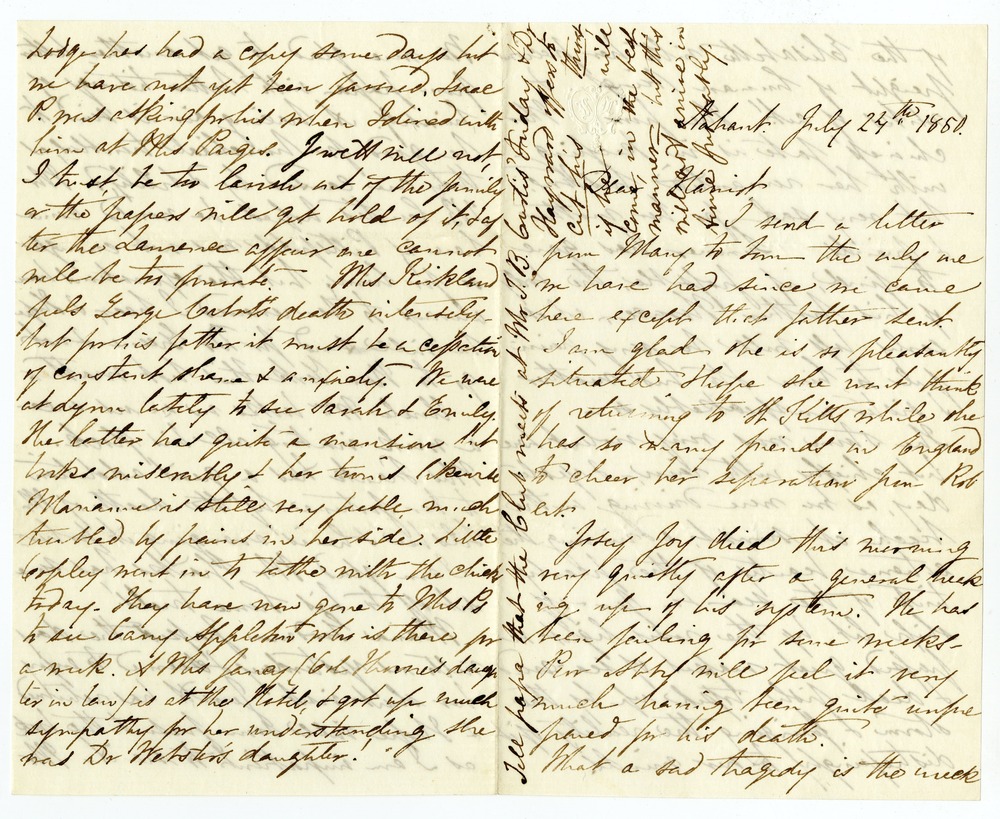 Nahant. July 24th 1850.
Dear Harriot
I send a letter
from Mary to Tom the only one
we have had since we came
here except that father sent.
I am glad she is so pleasantly
situated & hope she wont think
of returning to St Kitts while she
has so many friends in England
to cheer her separation from Rob
ert.
Josey Joy died this morning
very quietly after a general break
ing up of his system. He has
been failing for some weeks-
Poor Abby will feel it very
much having been quite unpre
pared for his death.
What a sad tragedy is the wreck
Lodge has had a copy some days but
we have not yet been favored. Isaac
P. was asking for his when I dined with
him at Mrs Paiges. Jewett will not,
I trust, be too lavish out of the family
or the papers will get hold of it, & af
ter the Lawrence affair one cannot
well be too private. Mrs Kirkland
feels George Cabot's death intensely-
but for his father it must be a cessation
of constant shame & anxiety. We were
at Lynn lately to see Sarah & Emily.
The latter has quite a mansion but
looks miserably & her twins likewise
Marianne is still very feeble much
troubled by pains in her side. Little
Copley went in to bathe with the chicks
today. They have now gone to Mrs P's
to see Carny Appleton who is there for
a week. A Mrs Jancy (Col Thorne's daugh
ter in law) is at the Hotel, & got up much
sympathy for her understanding she
was Dr Webster's daughter!
Tell papa that the Club meets at Mr T. B. Curtis' Friday & Dr
Hayward offers to
cut his
if he will
come, in the best
manner but this
will hardly arrive in
time probably.